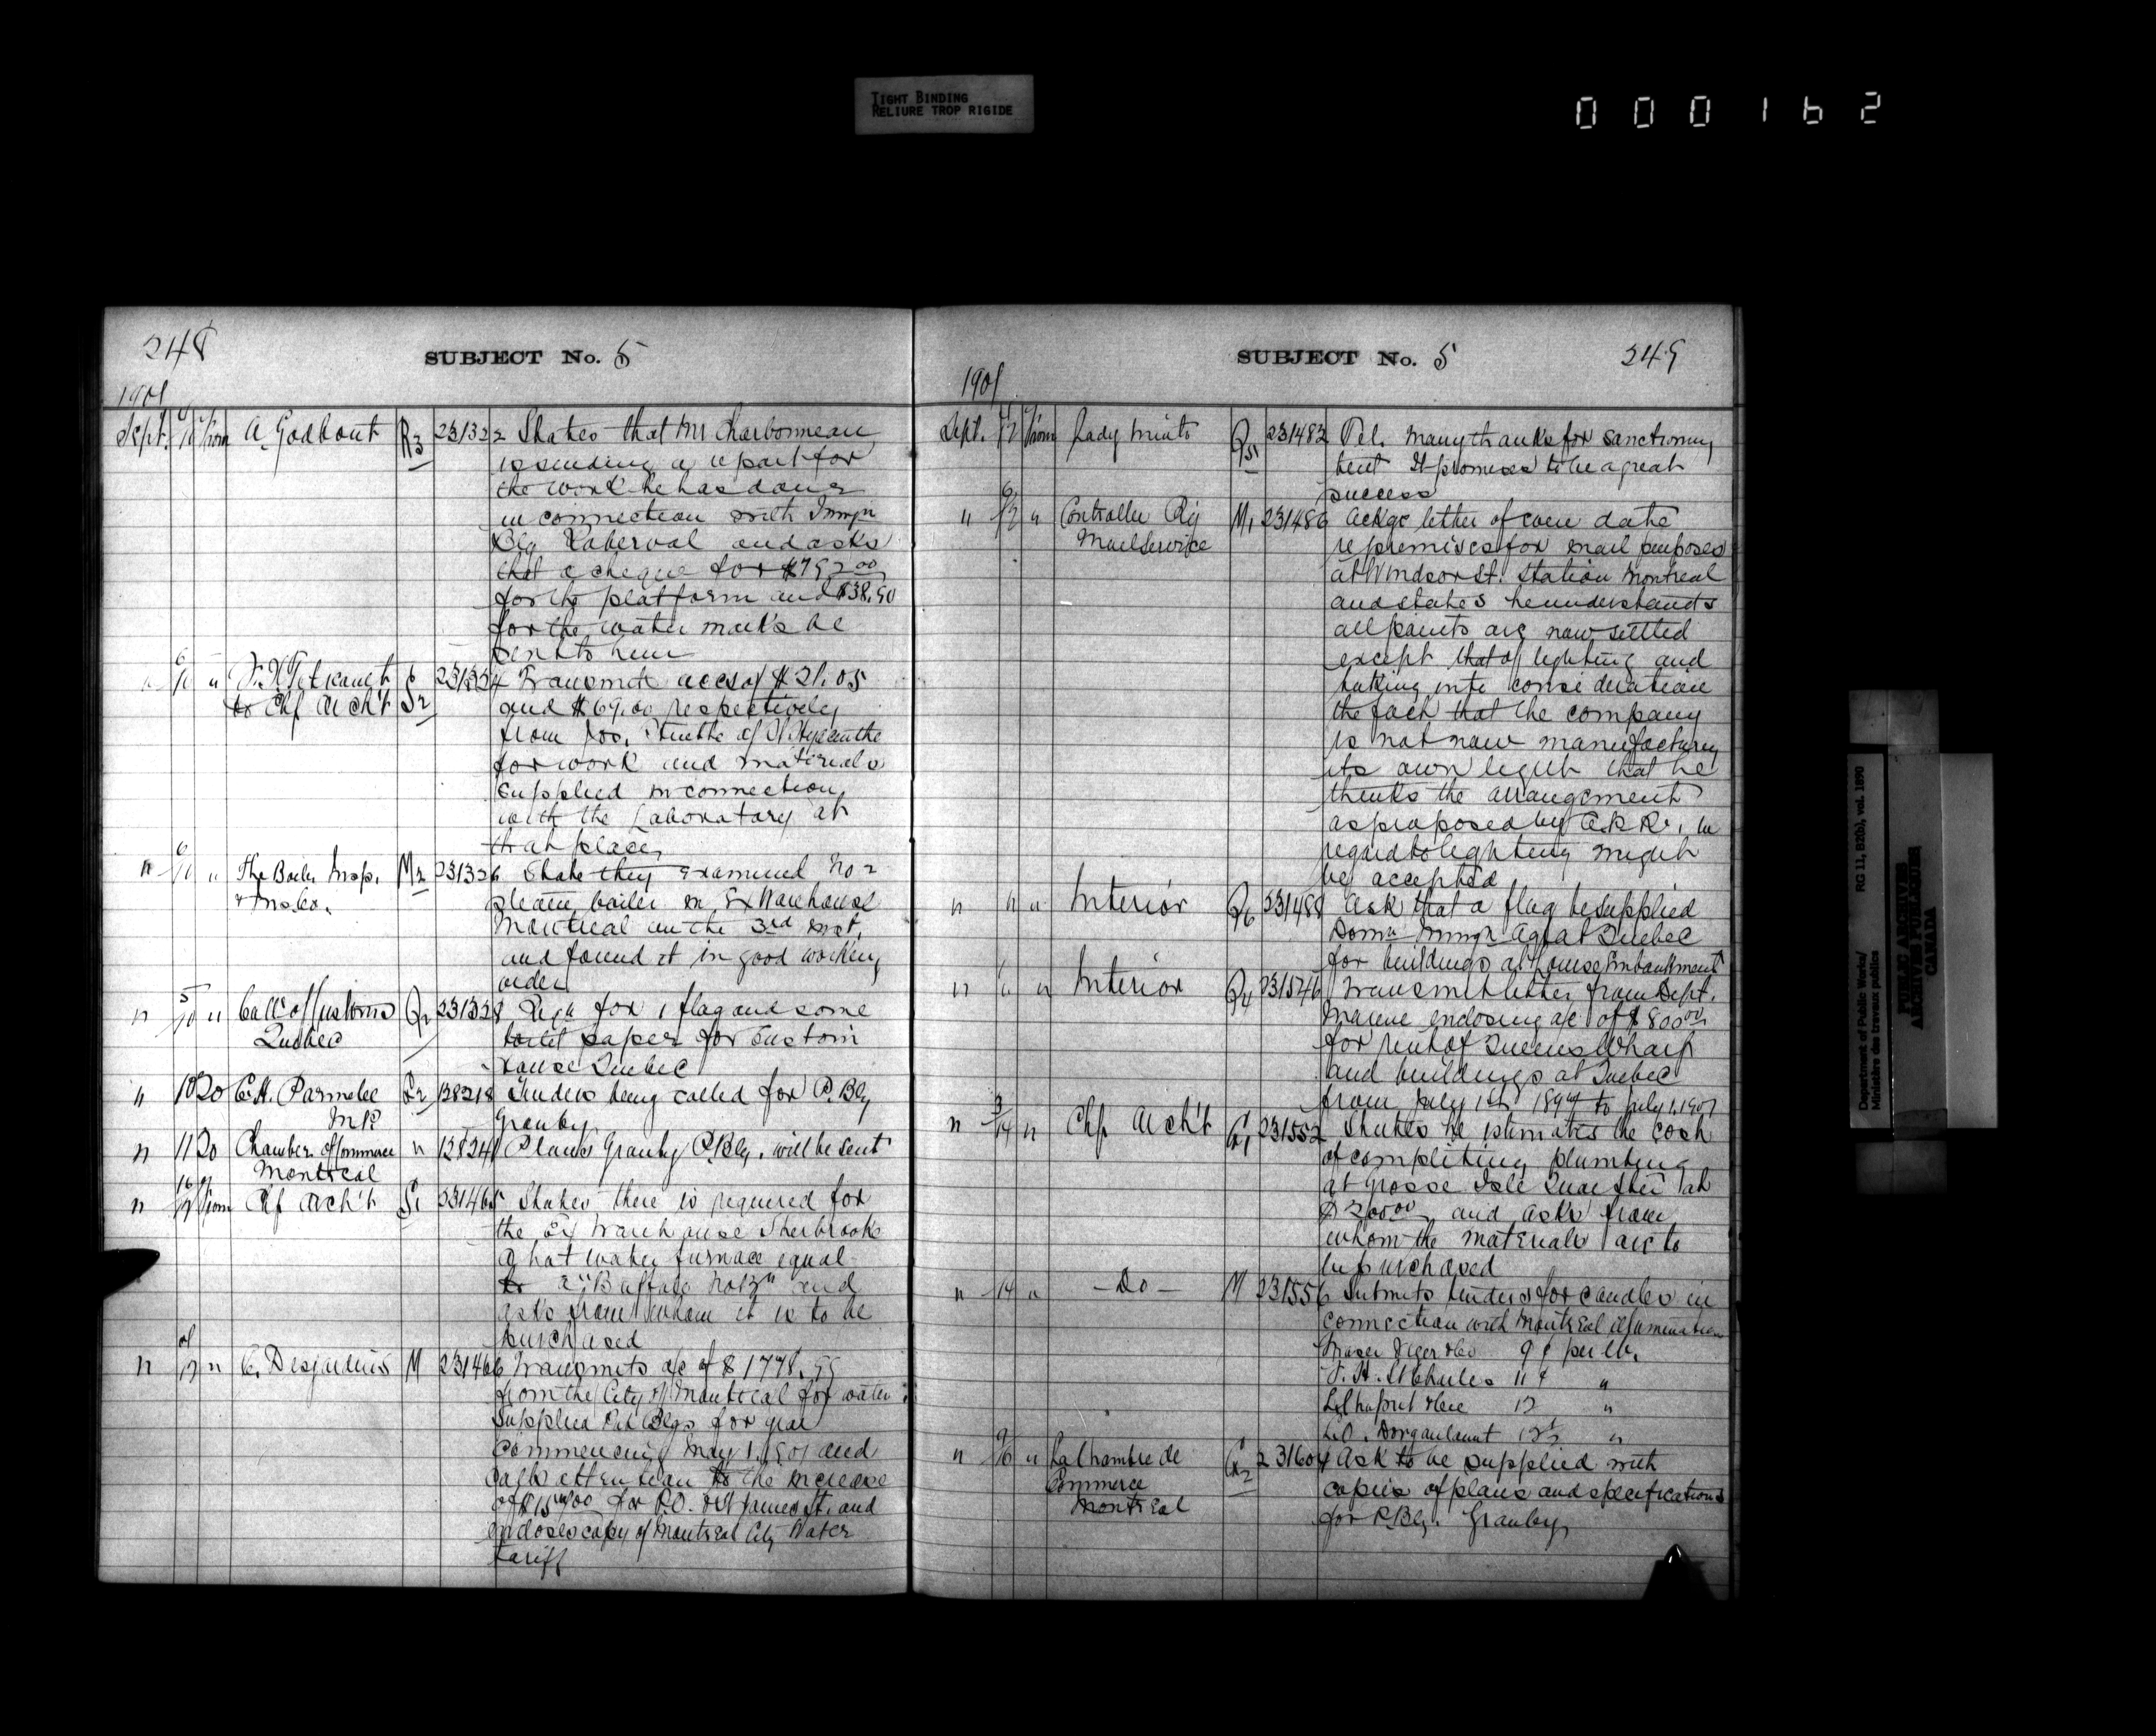 TIGHT BINDING
RELIURE TROP RIGIDE
000162
248
SUBJECT No. 5
1901
Sept. 6/10 from A. Godbout R3 231322 States that Mr Charbonneau
is sending a report for
the work he has done
in connection with Immgn
Blg Roberval and asks
that a cheque for
for the platform and $38.50
for the water marks be
sent to him
" 6/10 "
to Chf Arch't S2 231324 Transmits accs of $21.05
and $69.00 respectively
from Jos. of St Hyacinthe
for work and materials
supplied in connection
with the Laboratory at
that place
" 6/10 " The Boiler Insp. M2 231326 State they examined No 2
& Ins. Co. steam boiler in Ex Warehouse
Montreal on the 3rd inst.
and found it in good working
order
" 5/10 " Coll. of Customs Q2 231328 Reqn for 1 flag and some
Quebec toilet paper for Custom
House Quebec
" 10 20 C.H. Parmelee G2 138218 Tenders being called for P. Blg
M.P. Granby
" 11 20 Chamber of Commerce " 138241 Plans Granby P. Blg. will be sent
Montreal
" from Chf Arch't S1 231465 States there is required for
the Ex Warehouse Sherbrooke
a hot water furnace equal
to a "Buffalo No 13" and
asks from whom it is to be
purchased
" " C. Desjardins M 231466 Transmits a/c of $1778.
from the City of Montreal for water
supplied Pub Blgs for year
commencing May 1, 1901 and
calls attention to the increase
of for P.O. St James St. and
encloses copy of Montreal City Water
tariff
SUBJECT No. 5
249
1901
Sept. from Lady Minto Q5 231482 Tel. Many thanks for sanctioning
tent It promises to be a great
success
" " Controller Ry M1 231486 Ackge letter of even date
Mail Service re premises for mail purposes
at Windsor St. Station Montreal
and states he understands
all points are now settled
except that of lighting and
taking into consideration
the fact that the company
is not now manufacturing
its own light that he
thinks the arrangement
as proposed by C.P.R., in
regard to lighting might
be accepted
" 11 " Interior Q6 231488 Ask that a flag be supplied
Domn Immgn Agt at Quebec
for buildings at Louise Embankment
" " Interior Q4 231546 Transmit letter from Dept.
Marine enclosing a/c of $800.00
for rent of Queens Wharf
and buildings at Quebec
from July 1st to July 1, 1901
" 3/14 " Chf Arch't G1 231552 States he estimates the cost
of completing plumbing
at Grosse Isle Quar Stn at
$200.00 and asks from
whom the materials are to
be purchased
" 14 " — Do — M 231556 Submits tenders for candles in
connection with Montreal illumination
Fraser Viger & Co 9¢ per lb.
St Charles 11¢ "
Laporte 12 "
"
" " La Chambre de G2 231604 Ask to be supplied with
Commerce copies of plans and specifications
Montreal for P. Blg. Granby
Department of Public Works/ RG 11, B2(b), vol. 1890
Ministère des travaux publics
PUBLIC ARCHIVES
ARCHIVES PUBLIQUES
CANADA